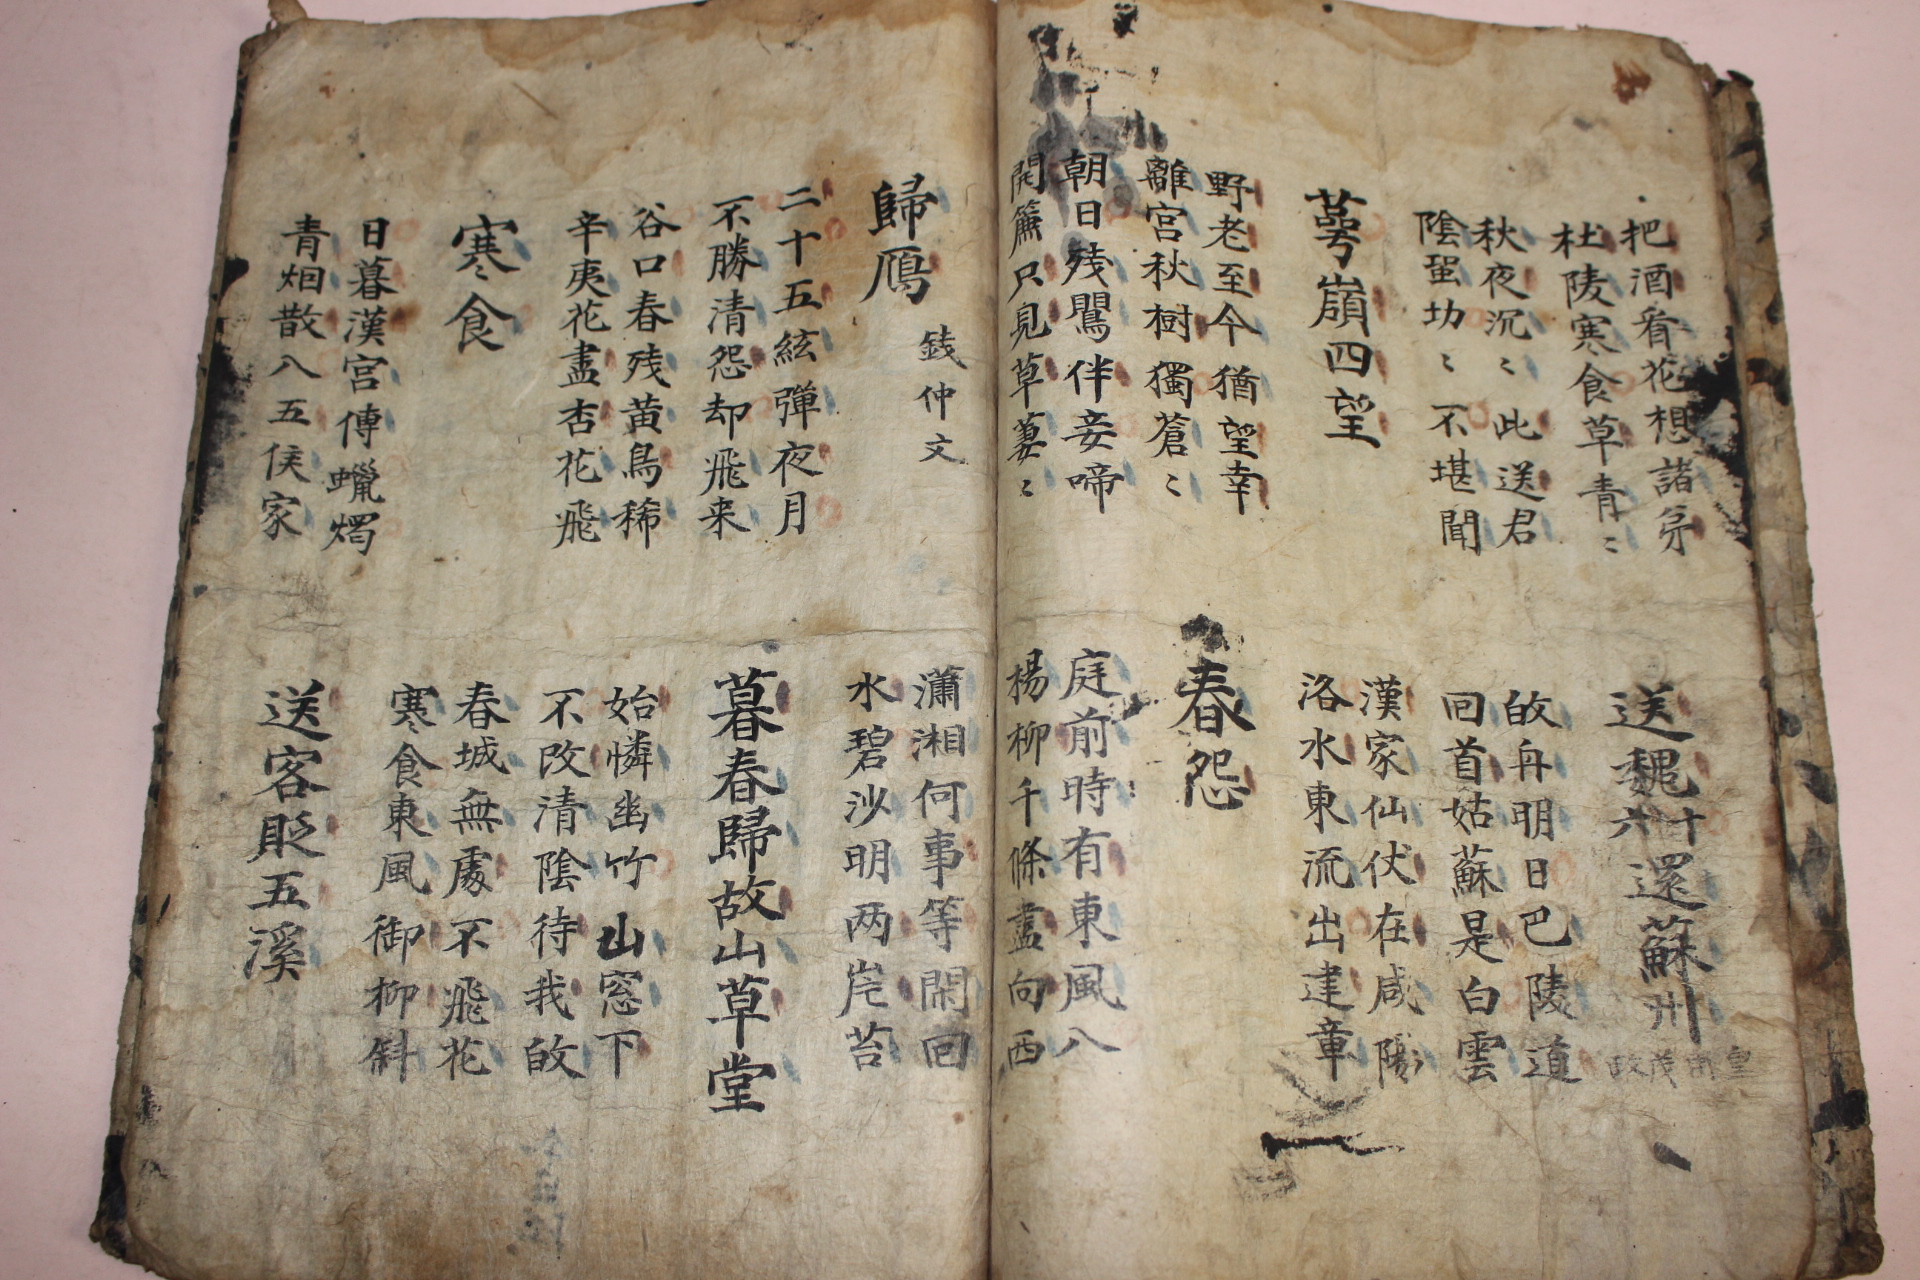 把酒看花想諸弟
杜陵寒食草青〻
送魏十六還蘇州
皇甫茂政
秋夜沉〻此送君
陰蛩切〻不堪聞
皈舟明日巴陵道
回首姑蘇是白雲
萼嶺四望
漢家仙伏在咸陽
洛水東流出建章
野老至今猶望幸
離宮秋樹獨蒼〻
春怨
朝日残鶯伴妾啼
開簾只見草萋〻
庭前時有東風入
楊柳千條盡向西
歸鴈 錢仲文
瀟湘何事等閑回
水碧沙明両岸苔
二十五絃彈夜月
不勝清怨却飛来
暮春歸故山草堂
谷口春残黄鳥稀
辛夷花盡杏花飛
始憐幽竹山窓下
不改清陰待我皈
寒食
春城無處不飛花
寒食東風御柳斜
日暮漢宮傳蠟燭
青烟散入五侯家
送客貶五溪